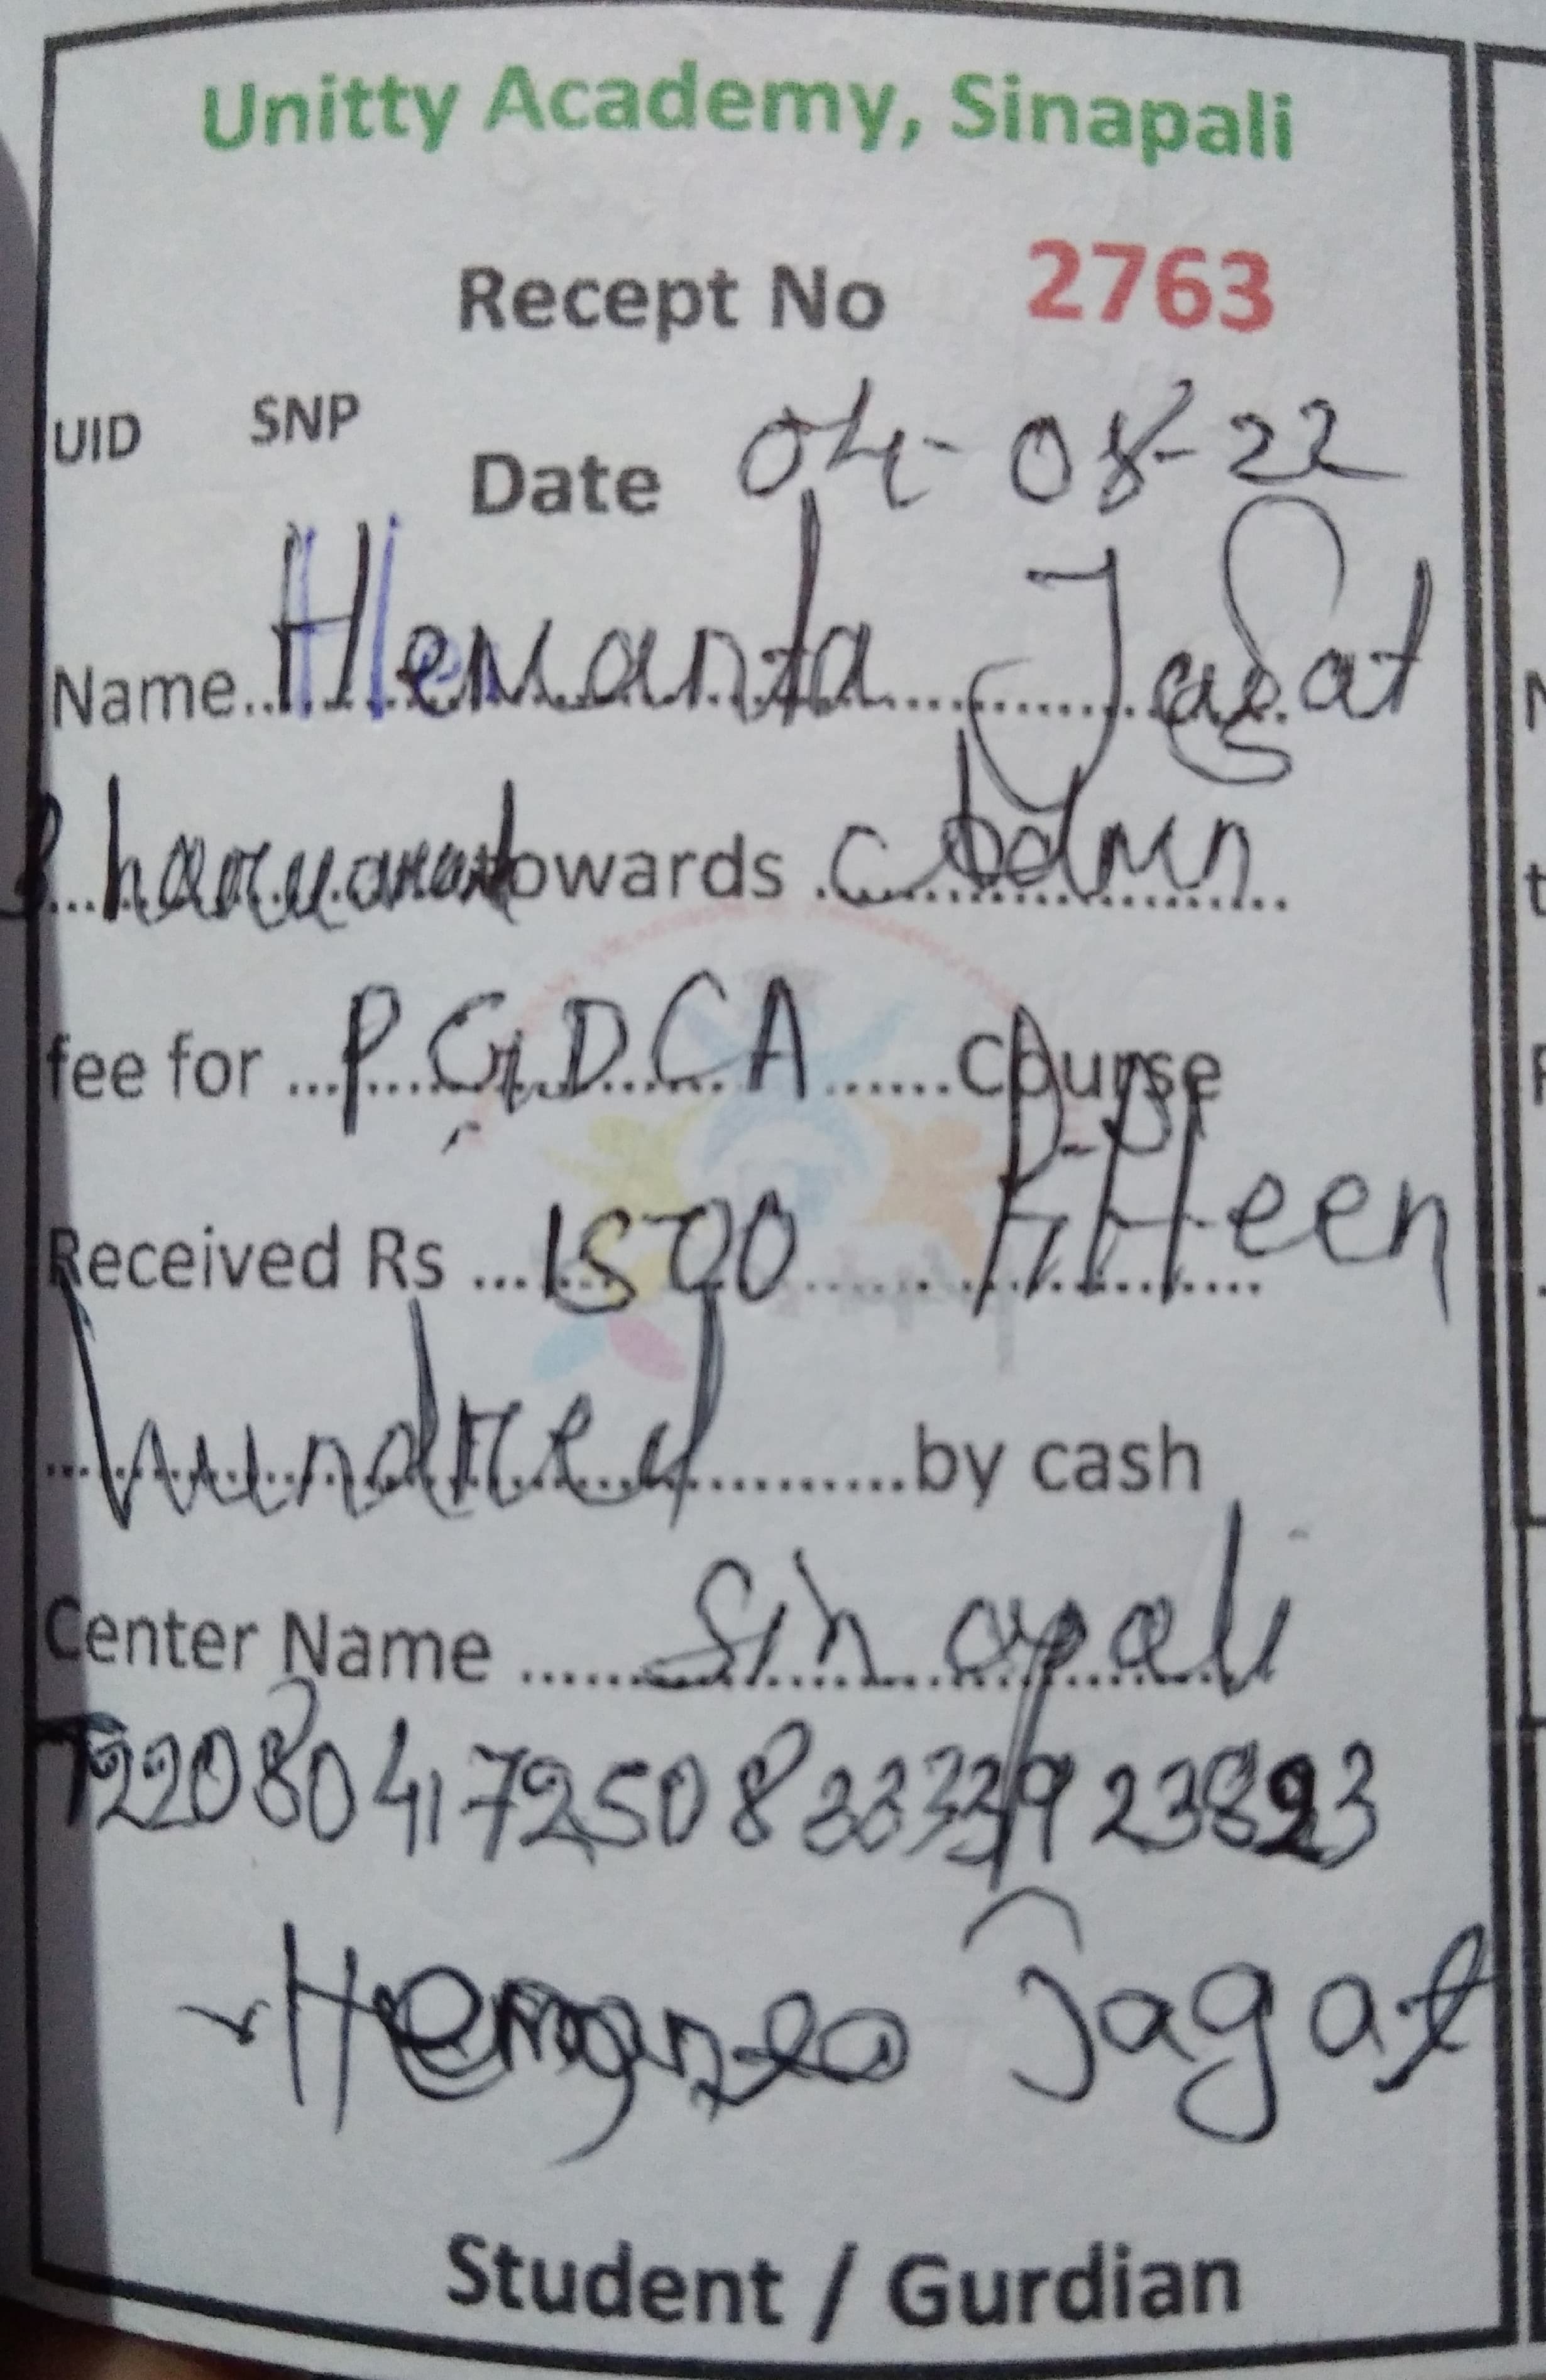 Unitty Academy, Sinapali
Recept No 2763
UID SNP
Date 04-08-22
Name Hemanta Jagat
towards
fee for P.G.D.C.A Course
Received Rs 1500 Fifteen
hundred by cash
Center Name Sinapali
Hemanta Jagat
Student / Gurdian